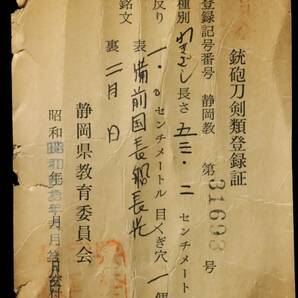 銃砲刀剣類登録証
登録記号番号 静岡教 第31693号
種別 わきざし 長さ 五三・二 センチメートル
反り 一・〇 センチメートル 目くぎ穴 一個
銘文 表 備前国長船長光
裏 二月 日
昭和 年 月 日
静岡県教育委員会